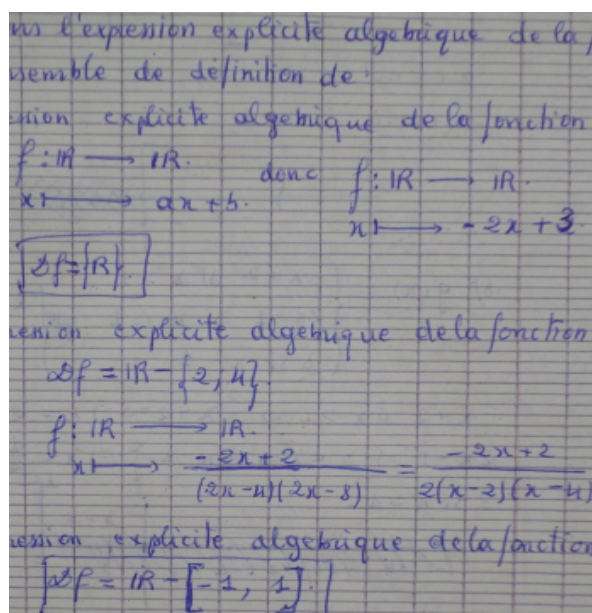 l'expression explicite algebrique de la
semble de définition de
explicite algebrique de la fonction
f : IR → IR. donc f : IR → IR.
x ↦ ax + b. x ↦ -2x + 3
Df = {R}.
explicite algebrique de la fonction
Df = IR - {2, 4}
f : IR → IR.
x ↦ (-2x + 2)/((2x-4)(2x-8)) = (-2x + 2)/(2(x-2)(x-4)
explicite algebrique de la fonction
Df = IR - [-1 ; 1].